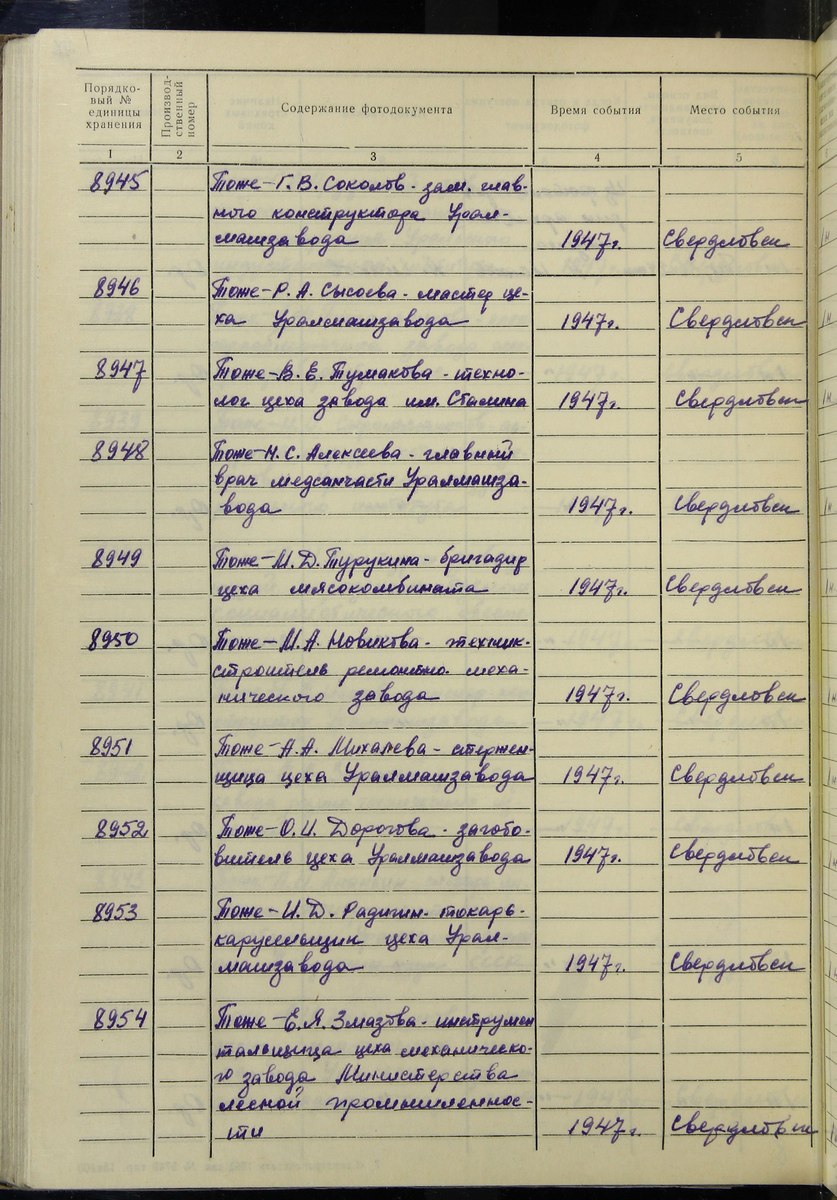 Порядко-
вый №
единицы
хранения
Производ-
ственный
номер
Содержание фотодокумента
Время события
Место события
1 2 3 4 5
8945 Тоже - Г. В. Соколов - зам. глав-
ного конструктора Урал-
машзавода 1947 г. Свердловск
8946 Тоже - Р. А. Сысоева - мастер це-
ха Уралмашзавода 1947 г. Свердловск
8947 Тоже - В. Е. Тумакова - техно-
лог цеха завода им. Сталина 1947 г. Свердловск
8948 Тоже - Н. С. Алексеева - главный
врач медсанчасти Уралмашза-
вода 1947 г. Свердловск
8949 Тоже - М. Д. Турукина - бригадир
цеха мясокомбината 1947 г. Свердловск
8950 Тоже - М. А. Новикова - техник-
строитель ремонтно меха-
нического завода 1947 г. Свердловск
8951 Тоже - А. А. Михалева - стержен-
щица цеха Уралмашзавода 1947 г. Свердловск
8952 Тоже - О. И. Дорогова - загото-
витель цеха Уралмашзавода 1947 г. Свердловск
8953 Тоже - И. Д. Радигин - токарь-
карусельщик цеха Урал-
машзавода 1947 г. Свердловск
8954 Тоже - Е. Я. Змазова - инструмен
тальщица цеха механическо-
го завода Министерства
лесной промышленнос-
ти 1947 г. Свердловск